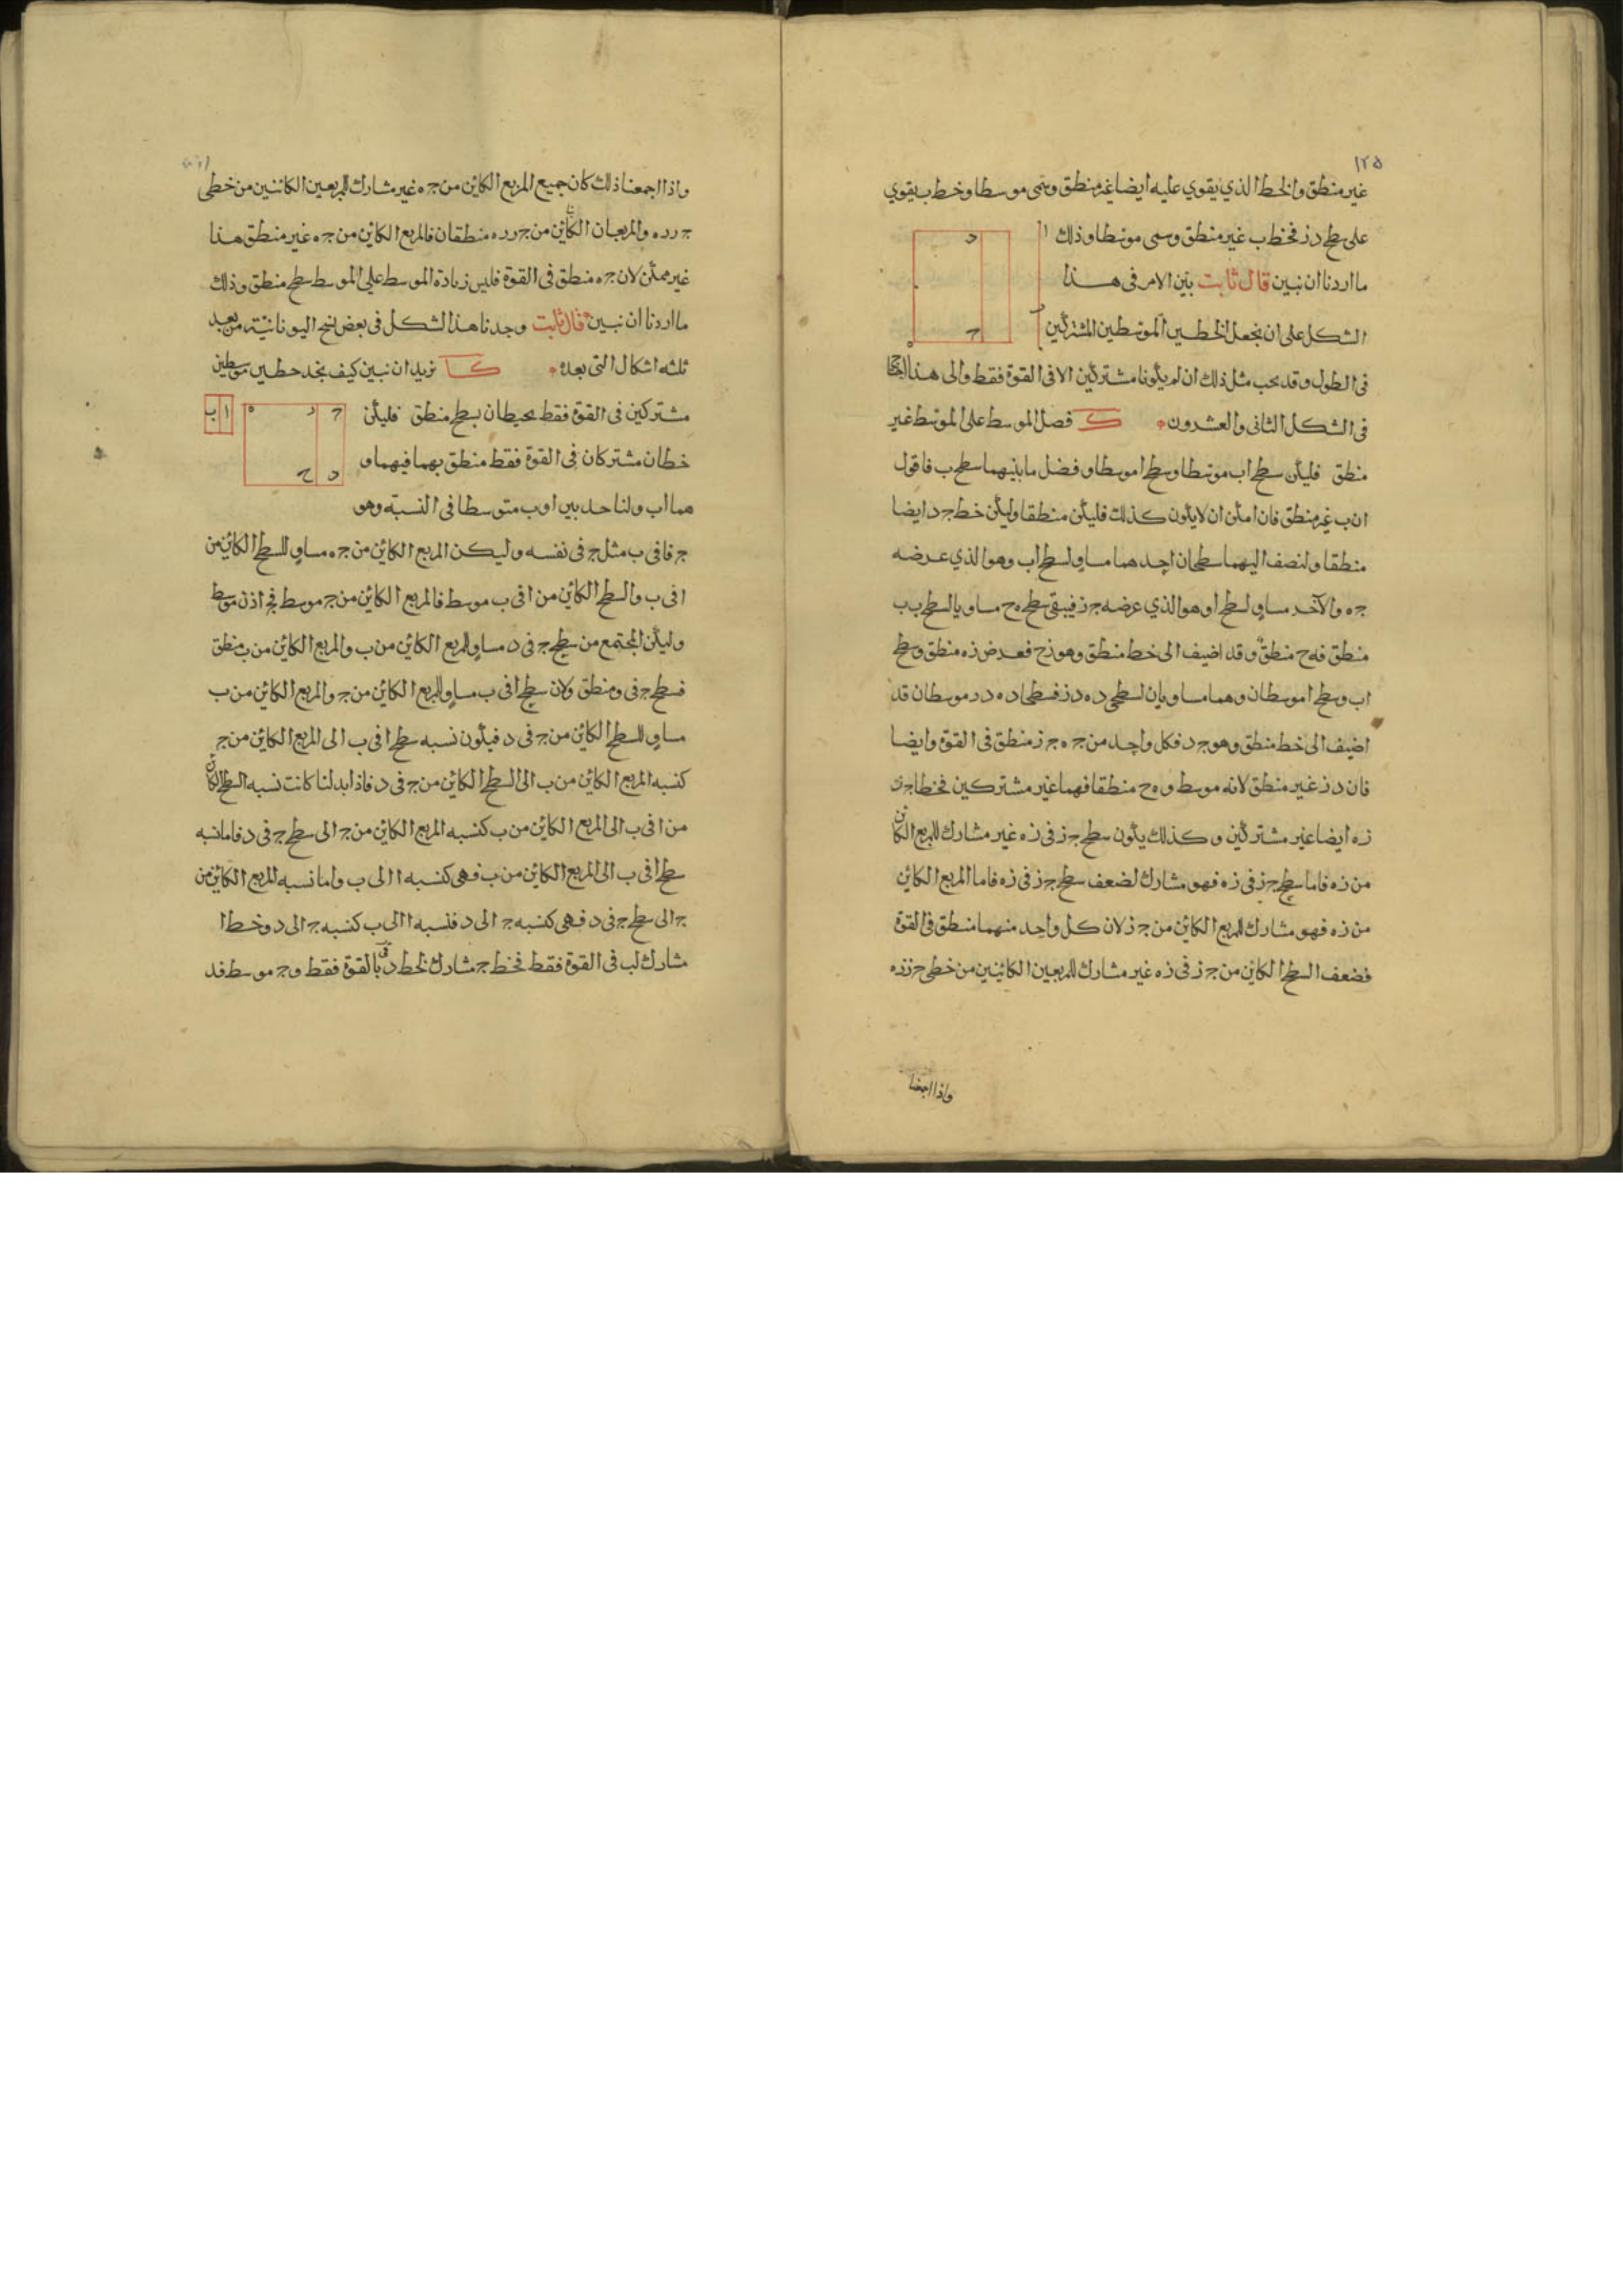 ١٢٥
غير منطق والخط الذي يقوي عليه ايضا غير منطق وسمى موسطا وخط ب يقوي
على سطح د ز فخط ب غير منطق وسمى موسطا وذلك
ما اردنا ان نبين قال ثابت بين الامر فى هذا
الشكل على ان نجعل الخطين الموسطين المشتركين
فى الطول وقد يجب مثل ذلك ان لم يكونا مشتركين الا فى القوة فقط والى هذا
فى الشكل الثانى والعشرون ك فصل الموسط على الموسط غير
منطق فليكن سطح اب موسطا وسطح ا موسطا وفضل ما بينهما سطح ب فاقول
ان ب غير منطق فان امكن ان لا يكون كذلك فليكن منطقا وليكن خط ج د ايضا
منطقا ولنضف اليهما سطحان احدهما مساو لسطح اب وهو الذي عرضه
ج ه والآخر مساو لسطح ا وهو الذي عرضه ج ز فيبقى سطح ه ح مساويا لسطح ب ب
منطق فه ح منطق وقد اضيف الى خط منطق وهو ز ح فعرض ز ه منطق وسطح
اب وسطح ا موسطان وهما مساويان لسطحى د ه د ز فسطحا د ه د ر موسطان قد
اضيف الى خط منطق وهو ج د فكل واحد من ج ه ج ز منطق فى القوة وايضا
فان د ز غير منطق لانه موسط و ه ح منطقا فهما غير مشتركين فخطا ج ز
ز ه ايضا غير مشتركين وكذلك يكون سطح ج ز فى ز ه غير مشارك للمربع الكائن
من ز ه فاما سطح ج ز فى ز ه فهو مشارك لضعف سطح ج ز فى ز ه فاما المربع الكائن
من ز ه فهو مشارك للمربع الكائن من ج ز لان كل واحد منهما منطق فى القوة
فضعف السطح الكائن من ج ز فى ز ه غير مشارك للمربعين الكائنين من خطى ج ز ز ه
واذا اجمعنا
واذا اجمعنا ذلك كان جميع المربع الكائن من ج ه غير مشارك للمربعين الكائنين من خطى
ج ر ر ه والمربعان الكائن من ج ر ر ه منطقان فالمربع الكائن من ج ه غير منطق هذا
غير ممكن لان ج ه منطق فى القوة فليس زيادة الموسط على الموسط سطح منطق وذلك
ما اردنا ان نبين قال ثابت وجدنا هذا الشكل فى بعض نسخ اليونانية من بعد
ثلثه اشكال التى بعده كا نريد ان نبين كيف نجد خطين موسطين
مشتركين فى القوة فقط يحيطان بسطح منطق فليكن
خطان مشتركان فى القوة فقط منطق بهما فيهما و
هما اب ولنا حد بين ا و ب متوسطا فى النسبة وهو
ج فا فى ب مثل ج فى نفسه وليكن المربع الكائن من ج ه مساو للسطح الكائن من
ا فى ب والسطح الكائن من ا فى ب موسط فالمربع الكائن من ج موسط فج اذن موسط
وليكن المجتمع من سطح ج فى د مساو للمربع الكائن من ب والمربع الكائن من ب منطق
فسطح ج فى و منطق ولان سطح ا فى ب مساو للمربع الكائن من ج والمربع الكائن من ب
مساو للسطح الكائن من ج فى د فيكون نسبه سطح ا فى ب الى المربع الكائن من ج
كنسبه المربع الكائن من ب الى السطح الكائن من ج فى د فاذا ابدلنا كانت نسبه السطح الكائن
من ا فى ب الى المربع الكائن من ب كنسبه المربع الكائن من ج الى سطح ج فى د فاما نسبه
سطح ا فى ب الى المربع الكائن من ب فهى كنسبه ا الى ب واما نسبه المربع الكائن من
ج الى سطح ج فى د فهى كنسبه ج الى د فنسبه ا الى ب كنسبه ج الى د وخط ا
مشارك لب فى القوة فقط فخط ج مشارك لخط د بالقوة فقط وج موسط فد